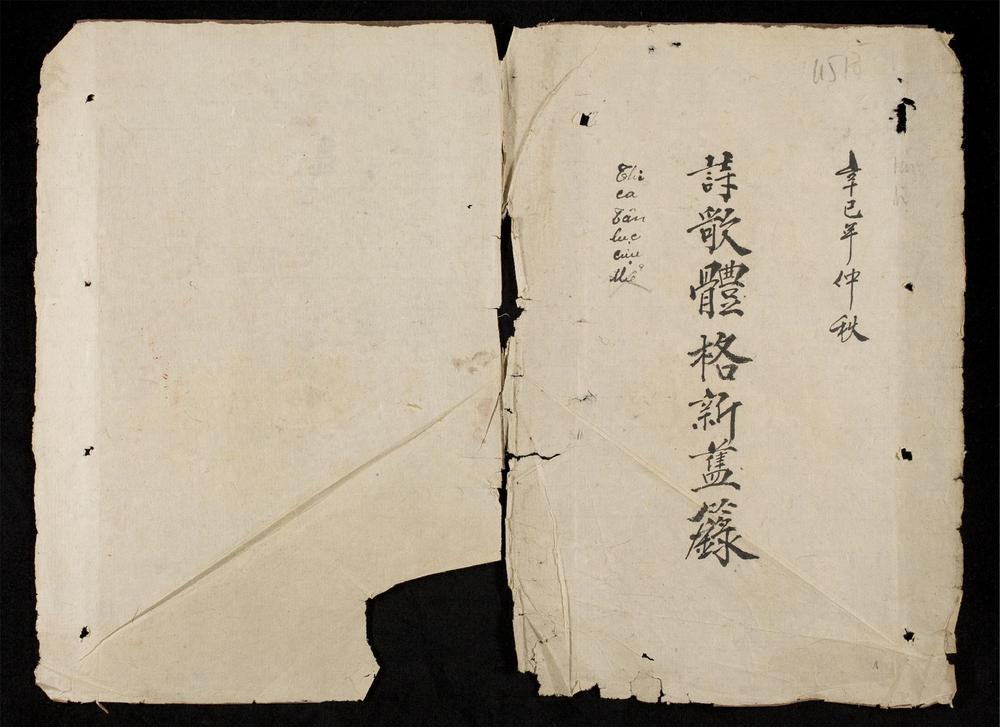 辛巳年仲秋
詩歌體格新舊籙
Thi
ca
tân
lục
cựu
thể